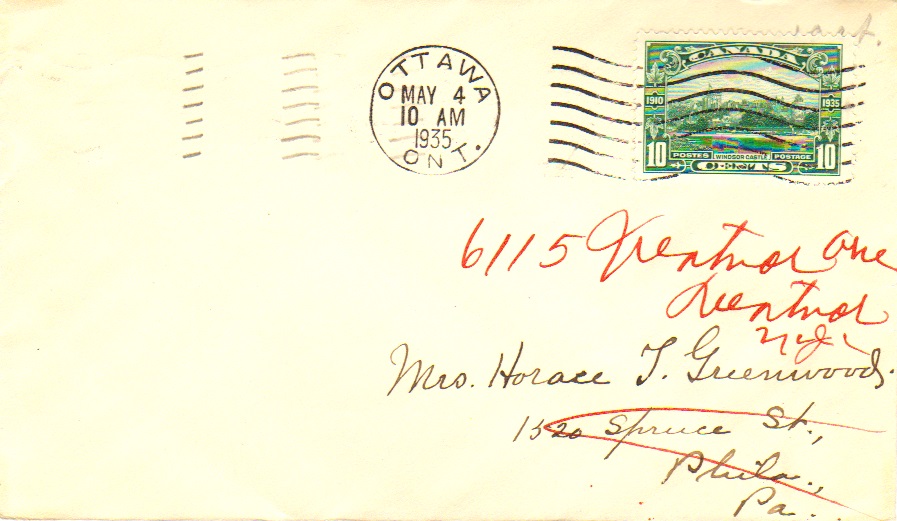 OTTAWA
MAY 4
10 AM
1935
ONT.
CANADA
1910 1935
10 POSTES WINDSOR CASTLE POSTAGE 10
CENTS
6115 Ventnor Ave
Ventnor
N.J.
Mrs. Horace T. Greenwood.
1520 Spruce St.,
Phila.,
Pa.